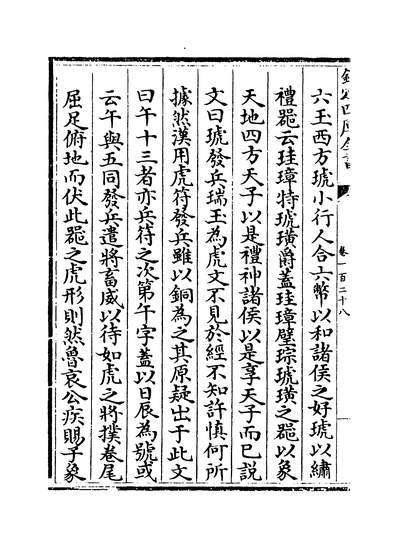 欽定四庫全書
卷一百二十八
六玉西方琥小行人合六幣以和諸侯之好琥以繡
禮器云珪璋特琥璜爵蓋珪璋璧琮琥璜之器以象
天地四方天子以是禮神諸侯以是享天子而已說
文曰琥發兵瑞玉為虎文不見於經不知許慎何所
據然漢用虎符發兵雖以銅為之其原疑出于此文
曰午十三者亦兵符之次第午字蓋以日辰為號或
云午與五同發兵遣將畜威以待如虎之將撲卷尾
屈足俯地而伏此器之虎形則然魯哀公疾賜子象